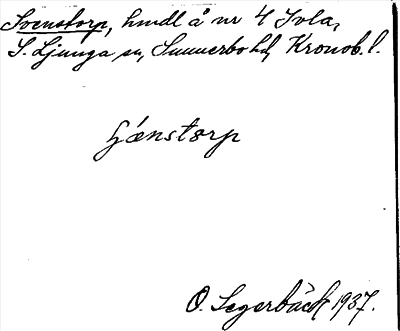 Svenstorp, hmdl å nr 4 Ivla,
S. Ljunga sn, Sunnerbo hd, Kronob. l.
Génstorp
O. Segerbäck 1937.